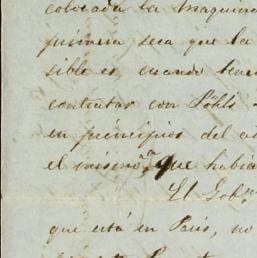 colocada la maquina
primera seca que la
sible es, cuando tene
contratar con Pohls
en principios del a
el mismo, que habia
El Gobo.
que está en Paris, no